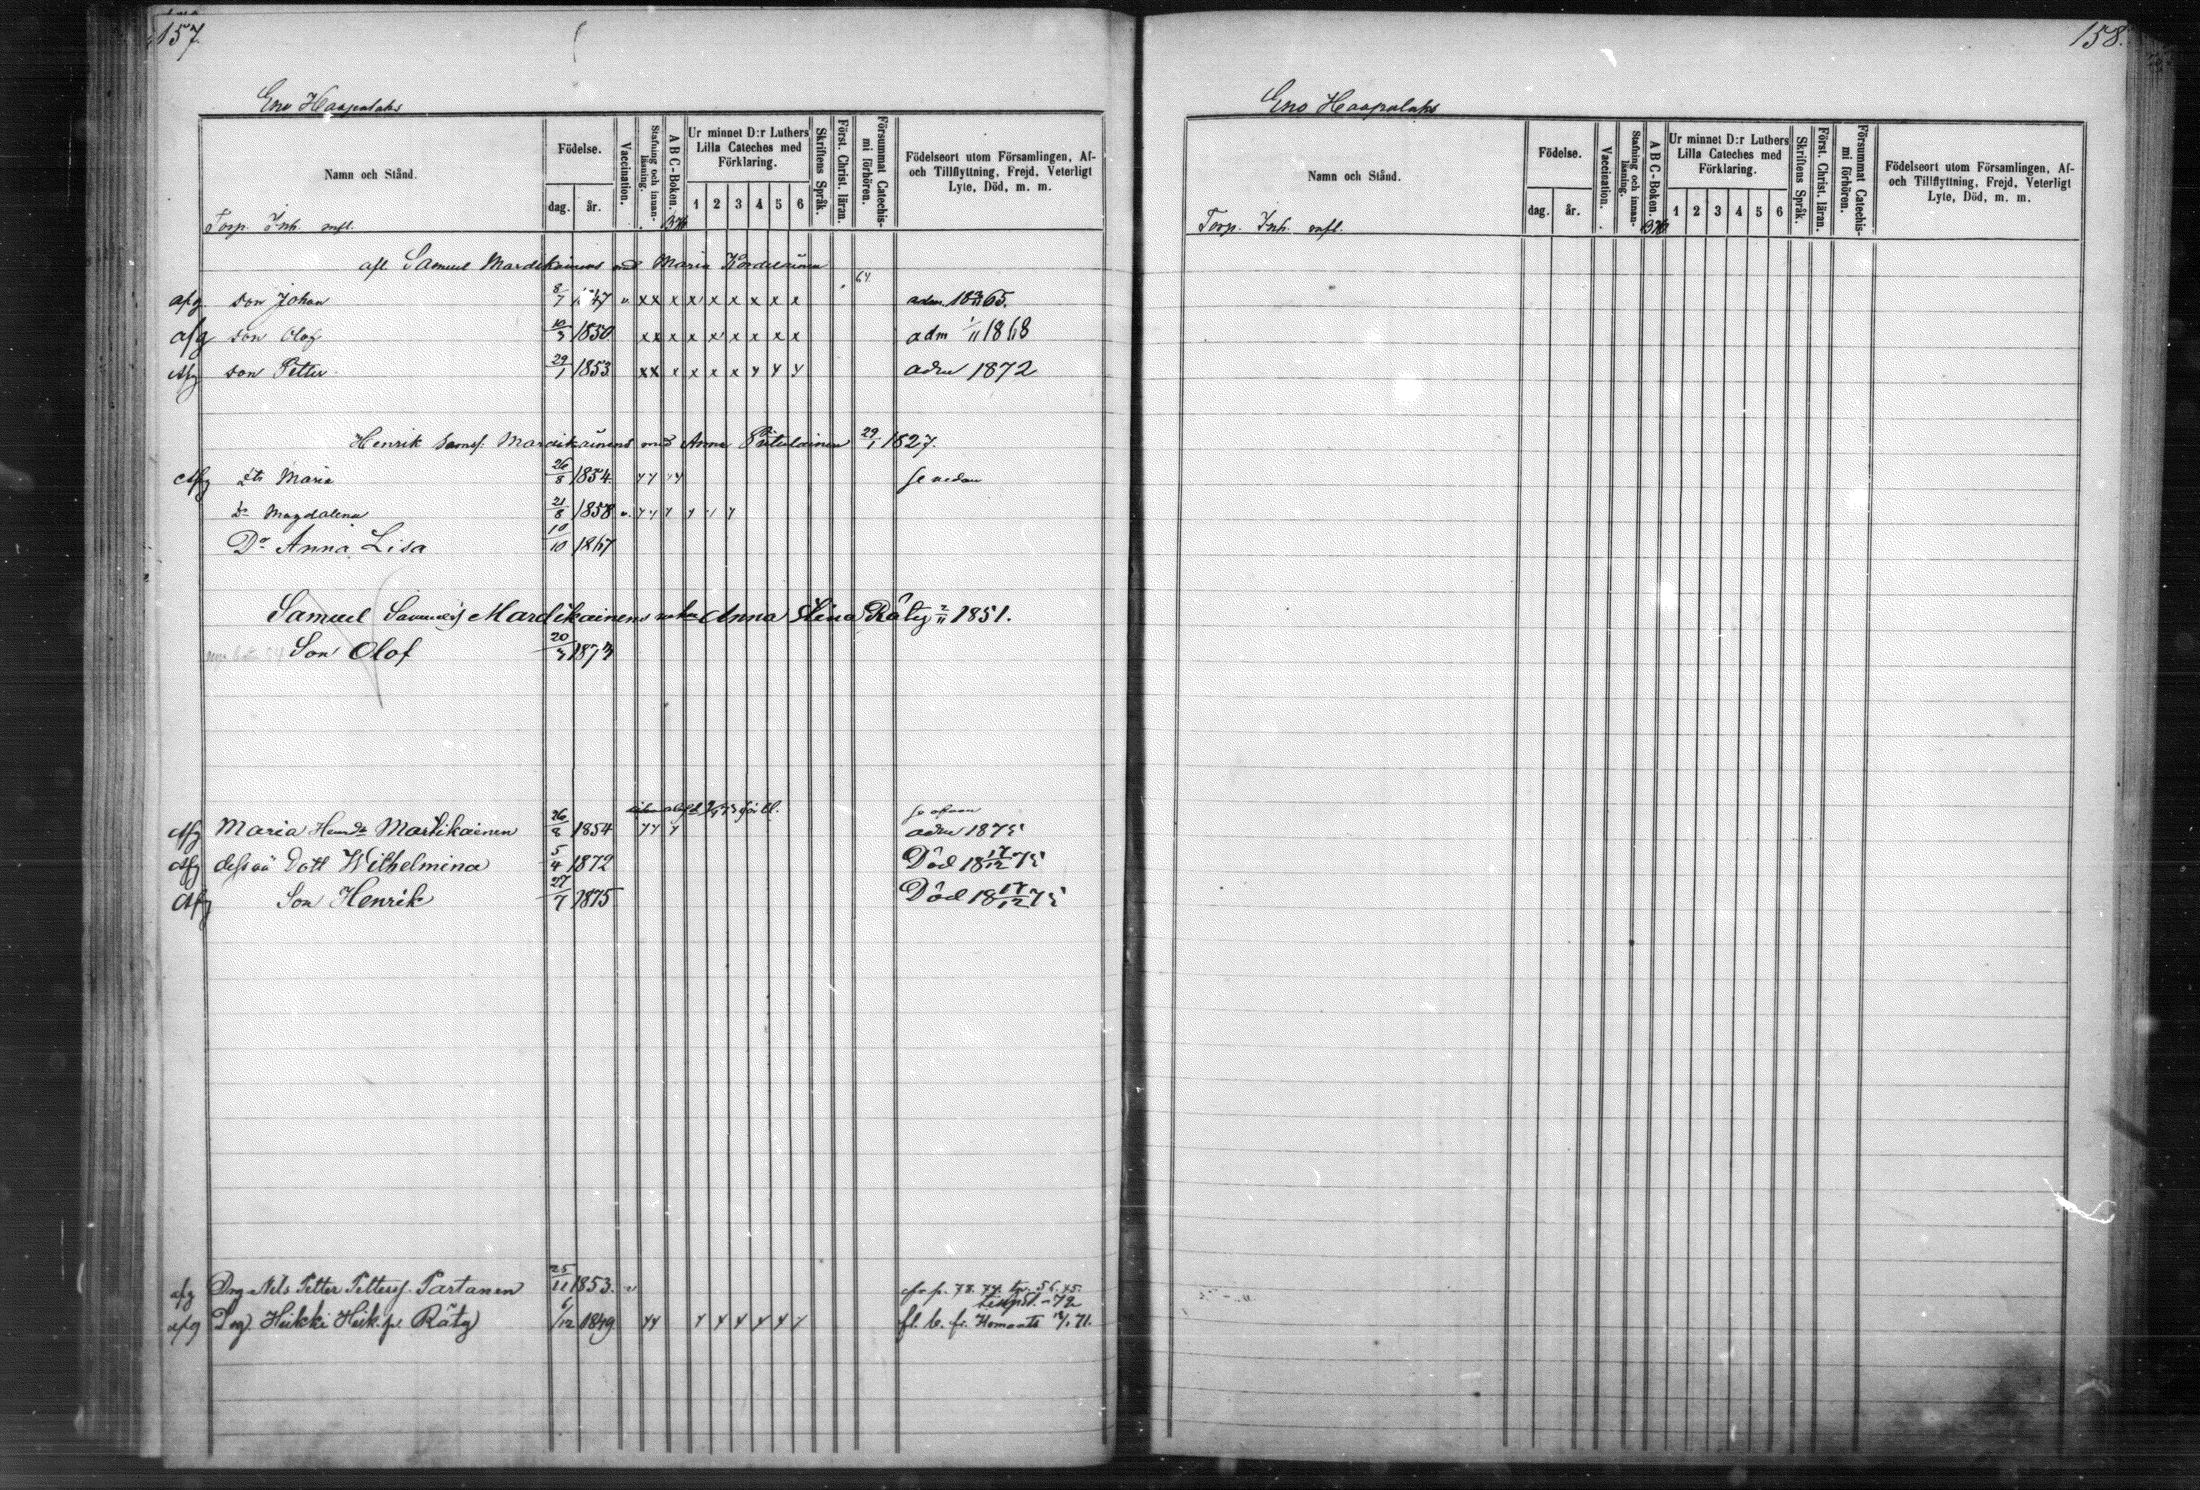 157.
Eno Haapalaks
Namn och Stånd.
Födelse.
dag. år.
Vaccination.
Stafning och innanläsning.
ABC-Boken.
Ur minnet D:r Luthers Lilla Cateches med Förklaring.
1 2 3 4 5 6
Skriftens Språk.
Först. Christ. läran.
Försummat Catechismi förhören.
Födelseort utom Församlingen, Af- och Tillflyttning, Frejd, Veterligt Lyte, Död, m. m.
Torp. Inh. mfl.
afl Samuel Mardikainens med Maria
64
afg son Johan 8/7 1847 v xx x x x x x x x adm. 65.
afg son Olof 10/3 1850 xx x x x x x x x adm 1/11 1868
afg son Petter 29/1 1853 xx x x x x y y y adm 1872
Henrik Samsf. Mardikainens med Anna 29/1 1827.
afg dtr Maria 26/8 1854 yy yy se nedan
Do Magdalena 21/8 1858 v. yy y y y y
Do Anna Lisa 10/10 1867
Samuel Samuelsf Mardikainens enka Anna Stina Räty 2/11 1851.
Son Olof 20/3 1873
afg Maria Henrds Martikainen 26/8 1854 yy y se ofvan adm 1875
afg dess oä Dott Wilhelmina 5/4 1872 Död 18 17/12 75
afg Son Henrik 27/7 1875 Död 18 17/12 75
afg Drg Nils Petter Petterss. Partanen 25/11 1853. v fr. p. 78. 74. 56. 45. -72
afg Drg. Heikki Heik.p. Räty 6/12 1849 yy y y y y y y fl. b. fr. Homants 71.
158.
Eno Haapalaks
Namn och Stånd.
Födelse.
dag. år.
Vaccination.
Stafning och innanläsning.
ABC-Boken.
Ur minnet D:r Luthers Lilla Cateches med Förklaring.
1 2 3 4 5 6
Skriftens Språk.
Först. Christ. läran.
Försummat Catechismi förhören.
Födelseort utom Församlingen, Af- och Tillflyttning, Frejd, Veterligt Lyte, Död, m. m.
Torp. Inh. mfl.